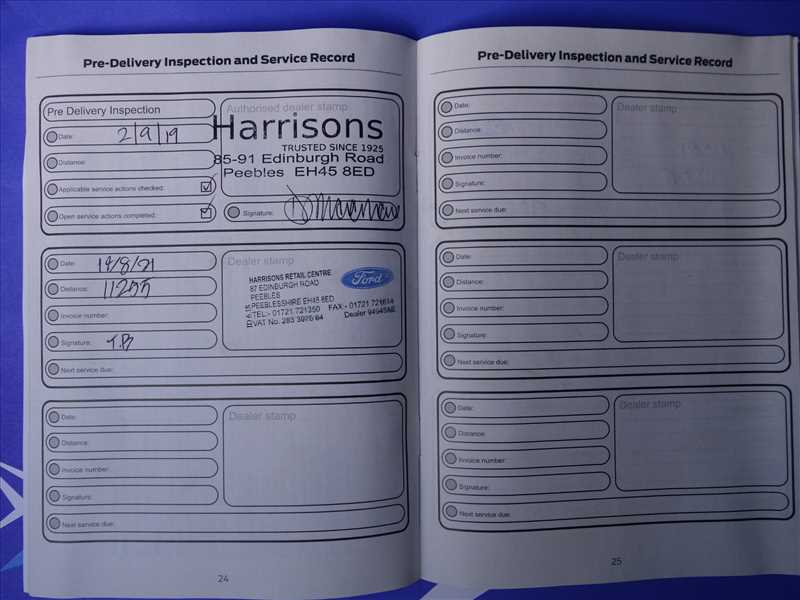 Pre-Delivery Inspection and Service Record
Pre Delivery Inspection
Date: 2/9/19
Distance:
Applicable service actions checked:
Open service actions completed:
Authorised dealer stamp
Harrisons
TRUSTED SINCE 1925
85-91 Edinburgh Road
Peebles EH45 8ED
Signature:
Date: 19/8/21
Distance: 11255
Invoice number:
Signature: T.B
Next service due:
Dealer stamp
HARRISONS RETAIL CENTRE
87 EDINBURGH ROAD
PEEBLES
PEEBLESSHIRE EH45 8ED
TEL:- 01721 721350 FAX:- 01721 721614
VAT No. 283 3926 64 Dealer 94945AB
Ford
Date:
Distance:
Invoice number:
Signature:
Next service due:
Dealer stamp
24
Pre-Delivery Inspection and Service Record
Date:
Distance:
Invoice number:
Signature:
Next service due:
Dealer stamp
Date:
Distance:
Invoice number:
Signature:
Next service due:
Dealer stamp
Date:
Distance:
Invoice number:
Signature:
Next service due:
Dealer stamp
25